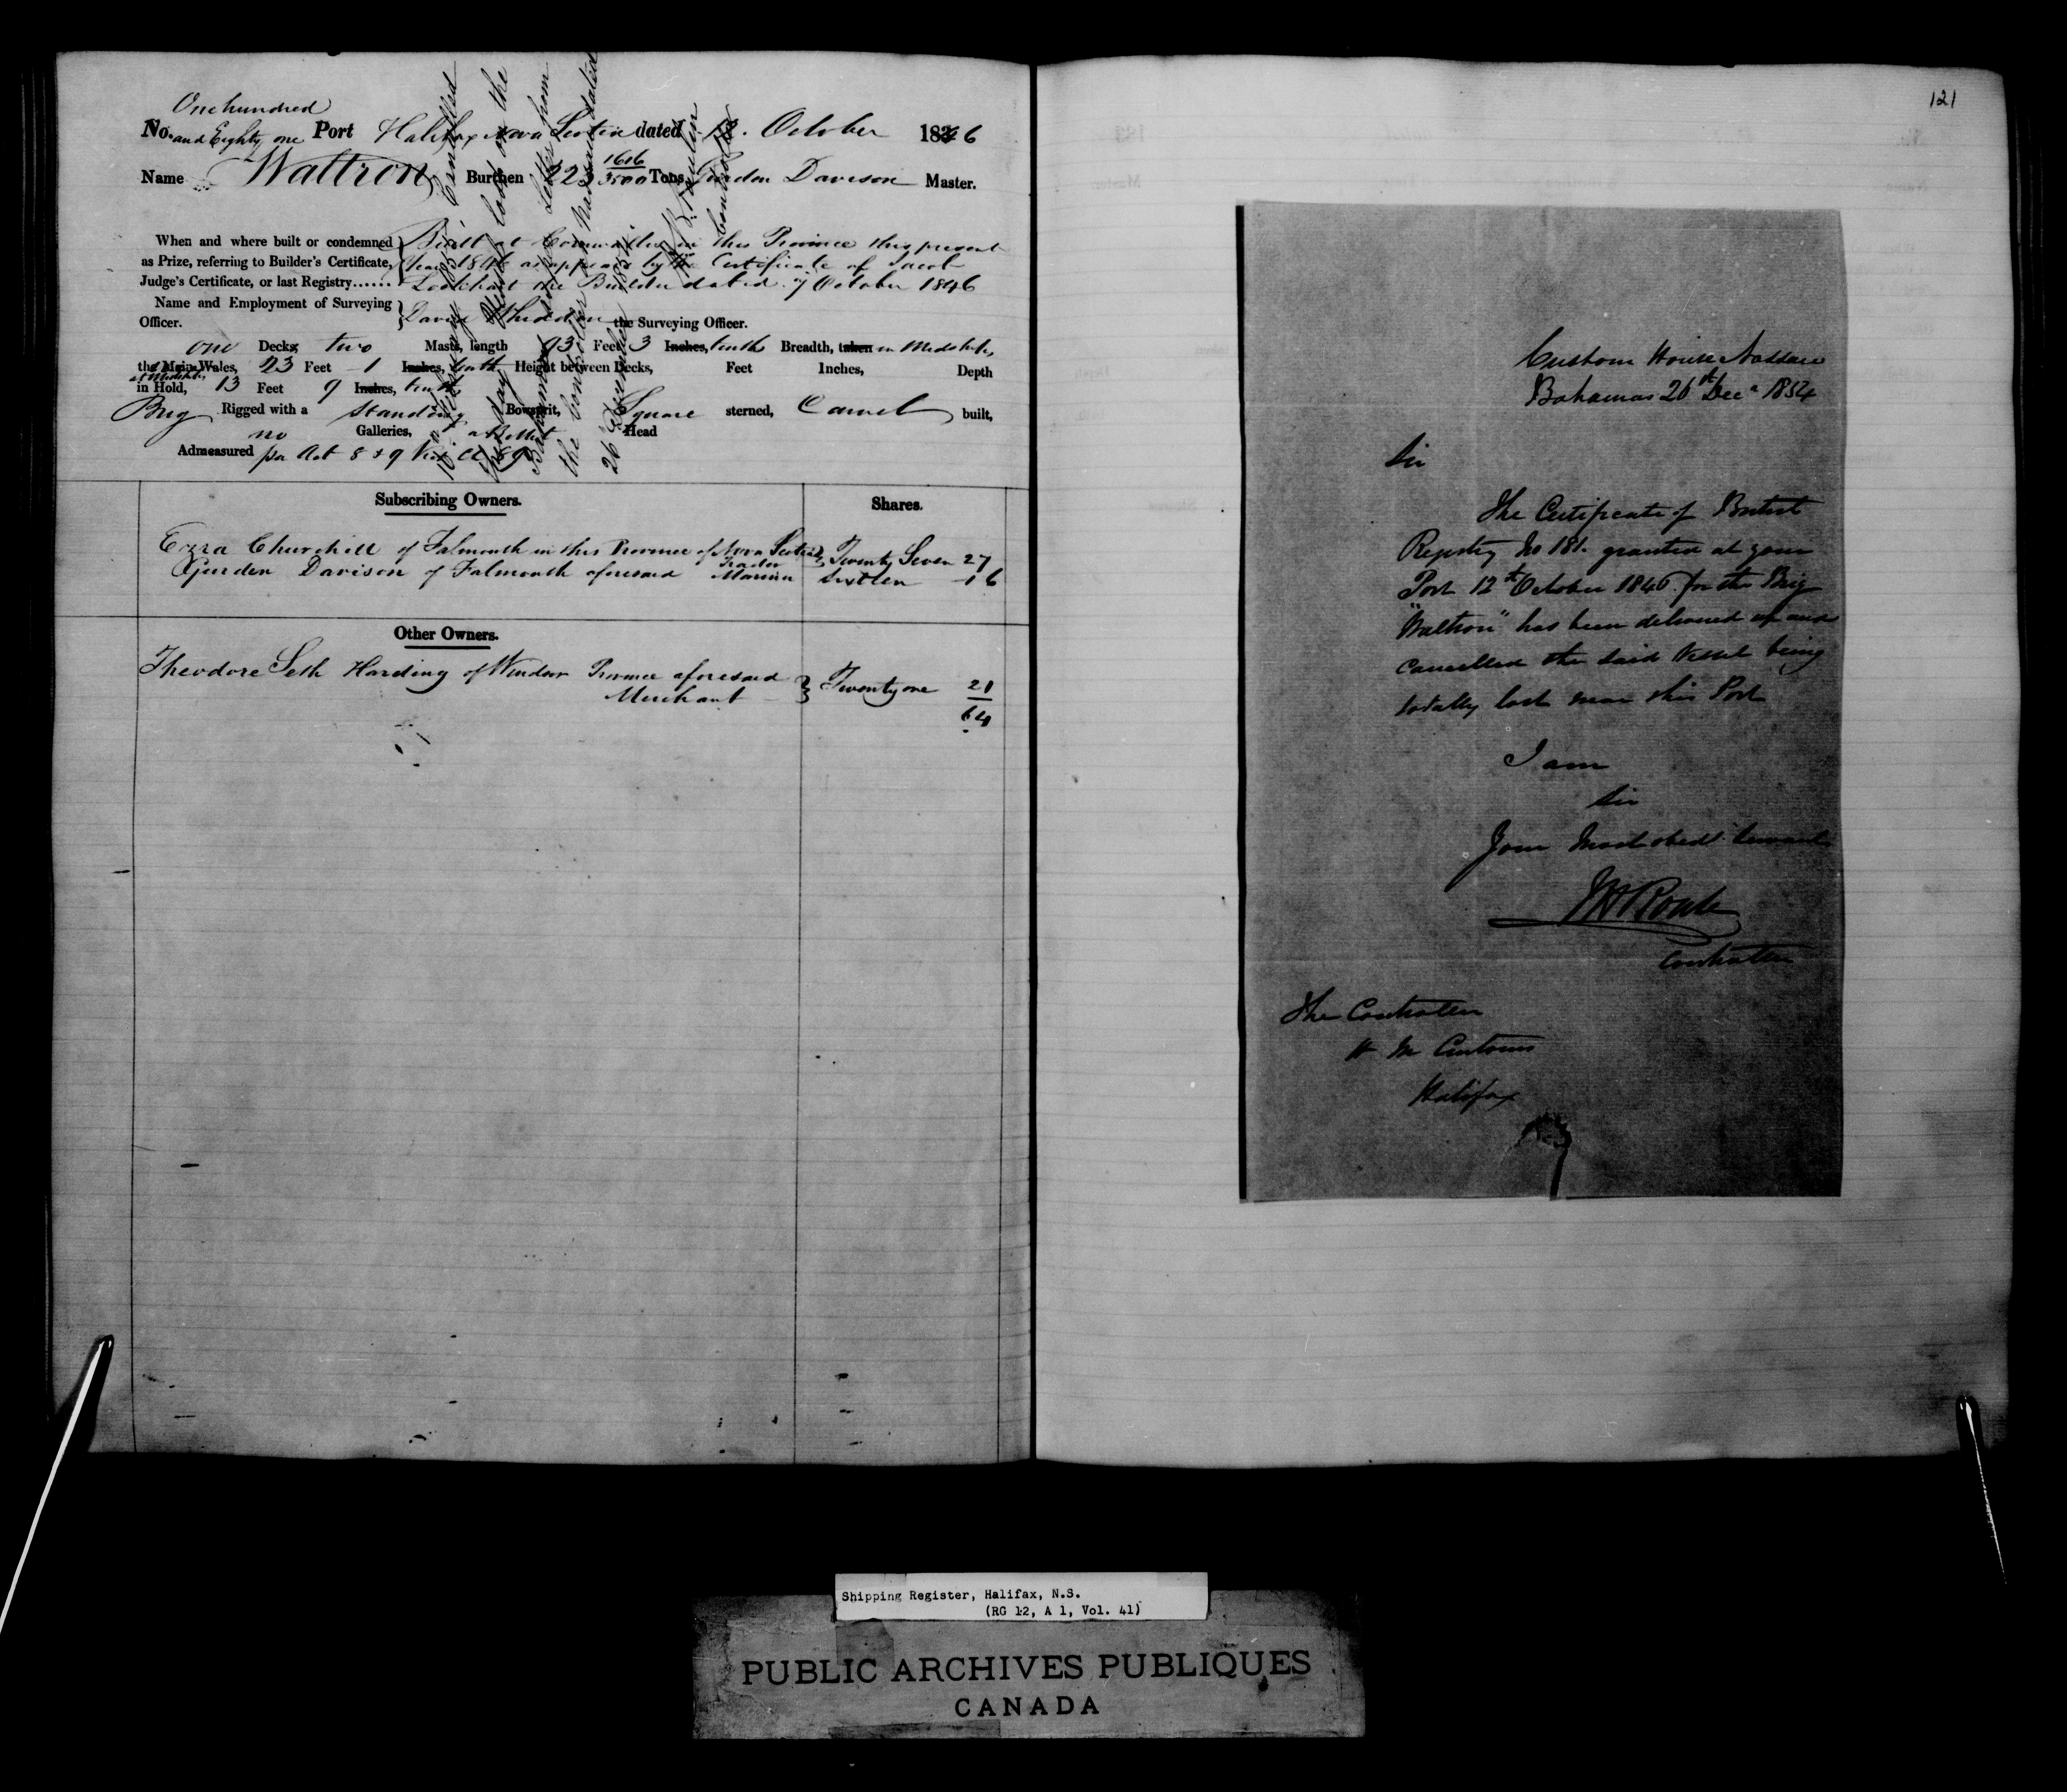 One hundred
No. and Eighty one Port Halifax Nova Scotia dated 12. October 1846
Name Waltron Burthen 223 1616/3500 Tons, Gurden Davison Master.
When and where built or condemned
as Prize, referring to Builder's Certificate,
Judge's Certificate, or last Registry......
Built at Cornwallis in this Province this present
Year 1846 as appears by the Certificate of Jacob
Lockhart the Builder dated 7 October 1846
Name and Employment of Surveying
Officer.
David the Surveying Officer.
one Decks, two Masts, length 93 Feet 3 Inches, tenths Breadth, taken in Midships
the Main Wales, 23 Feet 1 Inches, tenth Height between Decks, Feet Inches, Depth
at Midships
in Hold, 13 Feet 9 Inches, tenths
Brig Rigged with a Standing Bowsprit, Square sterned, Carvel built,
no Galleries, a Billet Head
Admeasured per Act 8 & 9 Vic Cl 89
Cancelled
lost on the
Letter from
the Controller Nassau dated
26 December 1854
Controller
Subscribing Owners.
Shares.
Ezra Churchill of Falmouth in this Province of Nova Scotia Trader Twenty Seven 27
Gurden Davison of Falmouth aforesaid Mariner Sixteen 16
Other Owners.
Theodore Seth Harding of Windsor Province aforesaid
Merchant Twenty one 21
64
121
Custom House Nassau
Bahamas 26th Decr 1854
Sir
The Certificate of British
Registry No 181. granted at your
Port 12th October 1846 for the Brig
"Waltron" has been delivered up and
cancelled the said Vessel being
totally lost near this Port
I am
Sir
Your Most obedt Servant
Controller
The Controller
H M Customs
Halifax
Shipping Register, Halifax, N.S.
(RG 12, A 1, Vol. 41)
PUBLIC ARCHIVES PUBLIQUES
CANADA